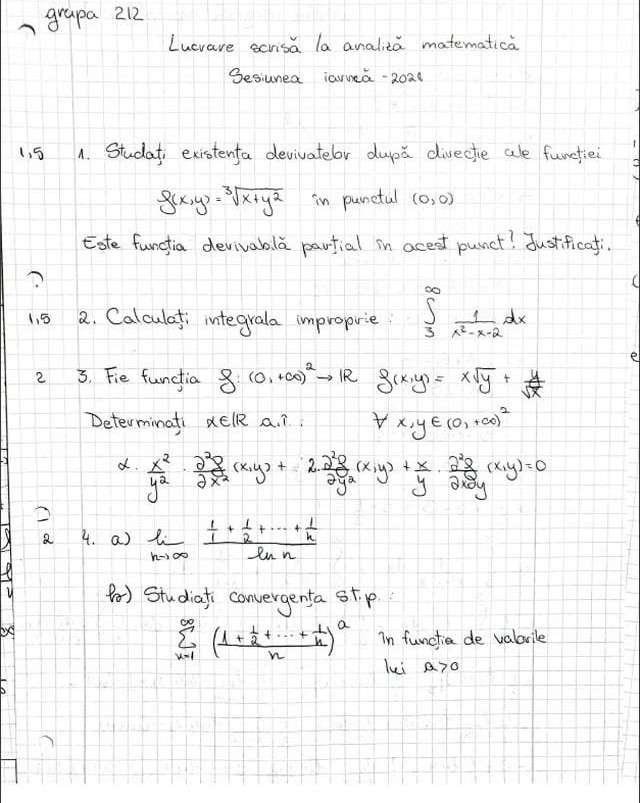 grupa 212
Lucrare scrisă la analiză matematică
Sesiunea iarnă - 2021
1,5 1. Studiați existența derivatelor după direcție ale funcției
f(x,y) = ∛(x+y²) în punctul (0,0)
Este funcția derivabilă parțial în acest punct? Justificați.
1,5 2. Calculați integrala improprie: ∫₃^∞ 1/(x²-x-2) dx
2 3. Fie funcția f: (0,+∞)² → IR f(x,y) = x√y + y/√x
Determinați α∈IR a.î.: ∀ x,y ∈ (0,+∞)²
α · x²/y² · ∂²f/∂x² (x,y) + 2 · ∂²f/∂y² (x,y) + x/y · ∂²f/∂x∂y (x,y) = 0
2 4. a) lim n→∞ (1/1 + 1/2 + ... + 1/n)/ln n
b) Studiați convergența s.t.p.:
∑ n=1 ∞ ((1 + 1/2 + ... + 1/n)/n)^a în funcția de valorile
lui a>0